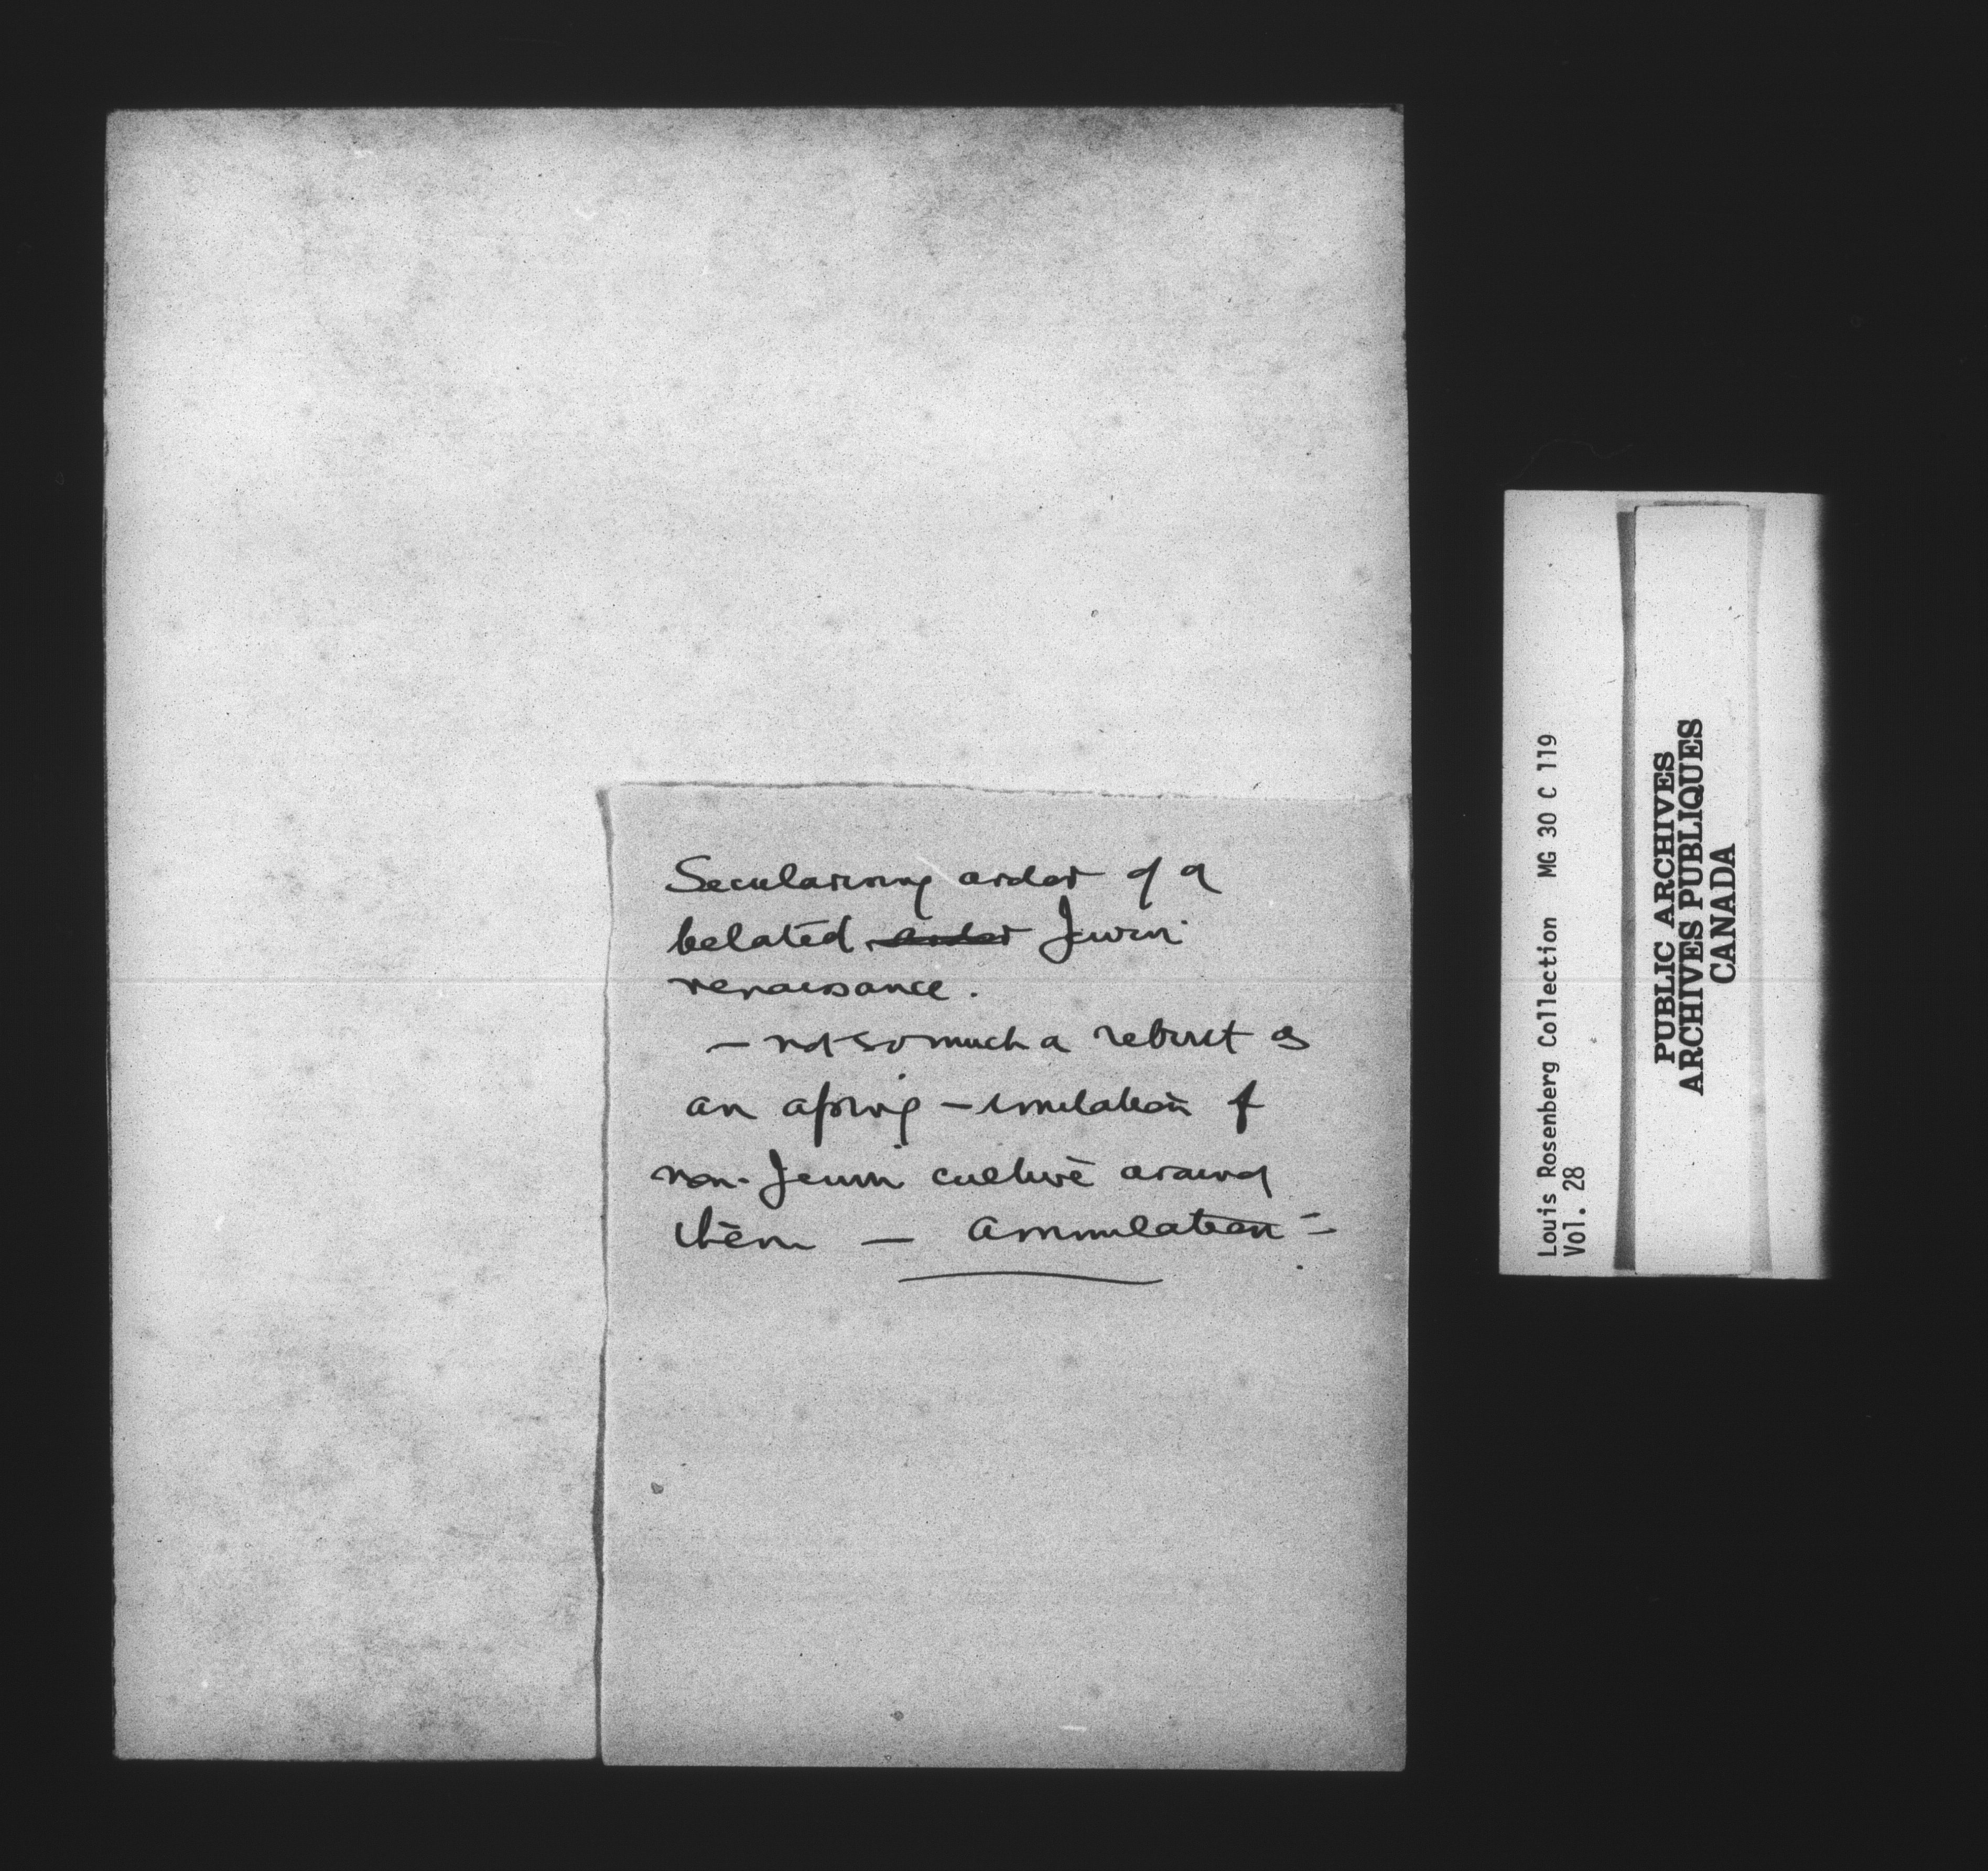 Secularising ardor of a
belated Jewish
renaissance.
— not so much a rebirth as
an aping - emulation of
non-Jewish culture around
them — assimilation =
Louis Rosenberg Collection MG 30 C 119
Vol. 28
PUBLIC ARCHIVES
ARCHIVES PUBLIQUES
CANADA